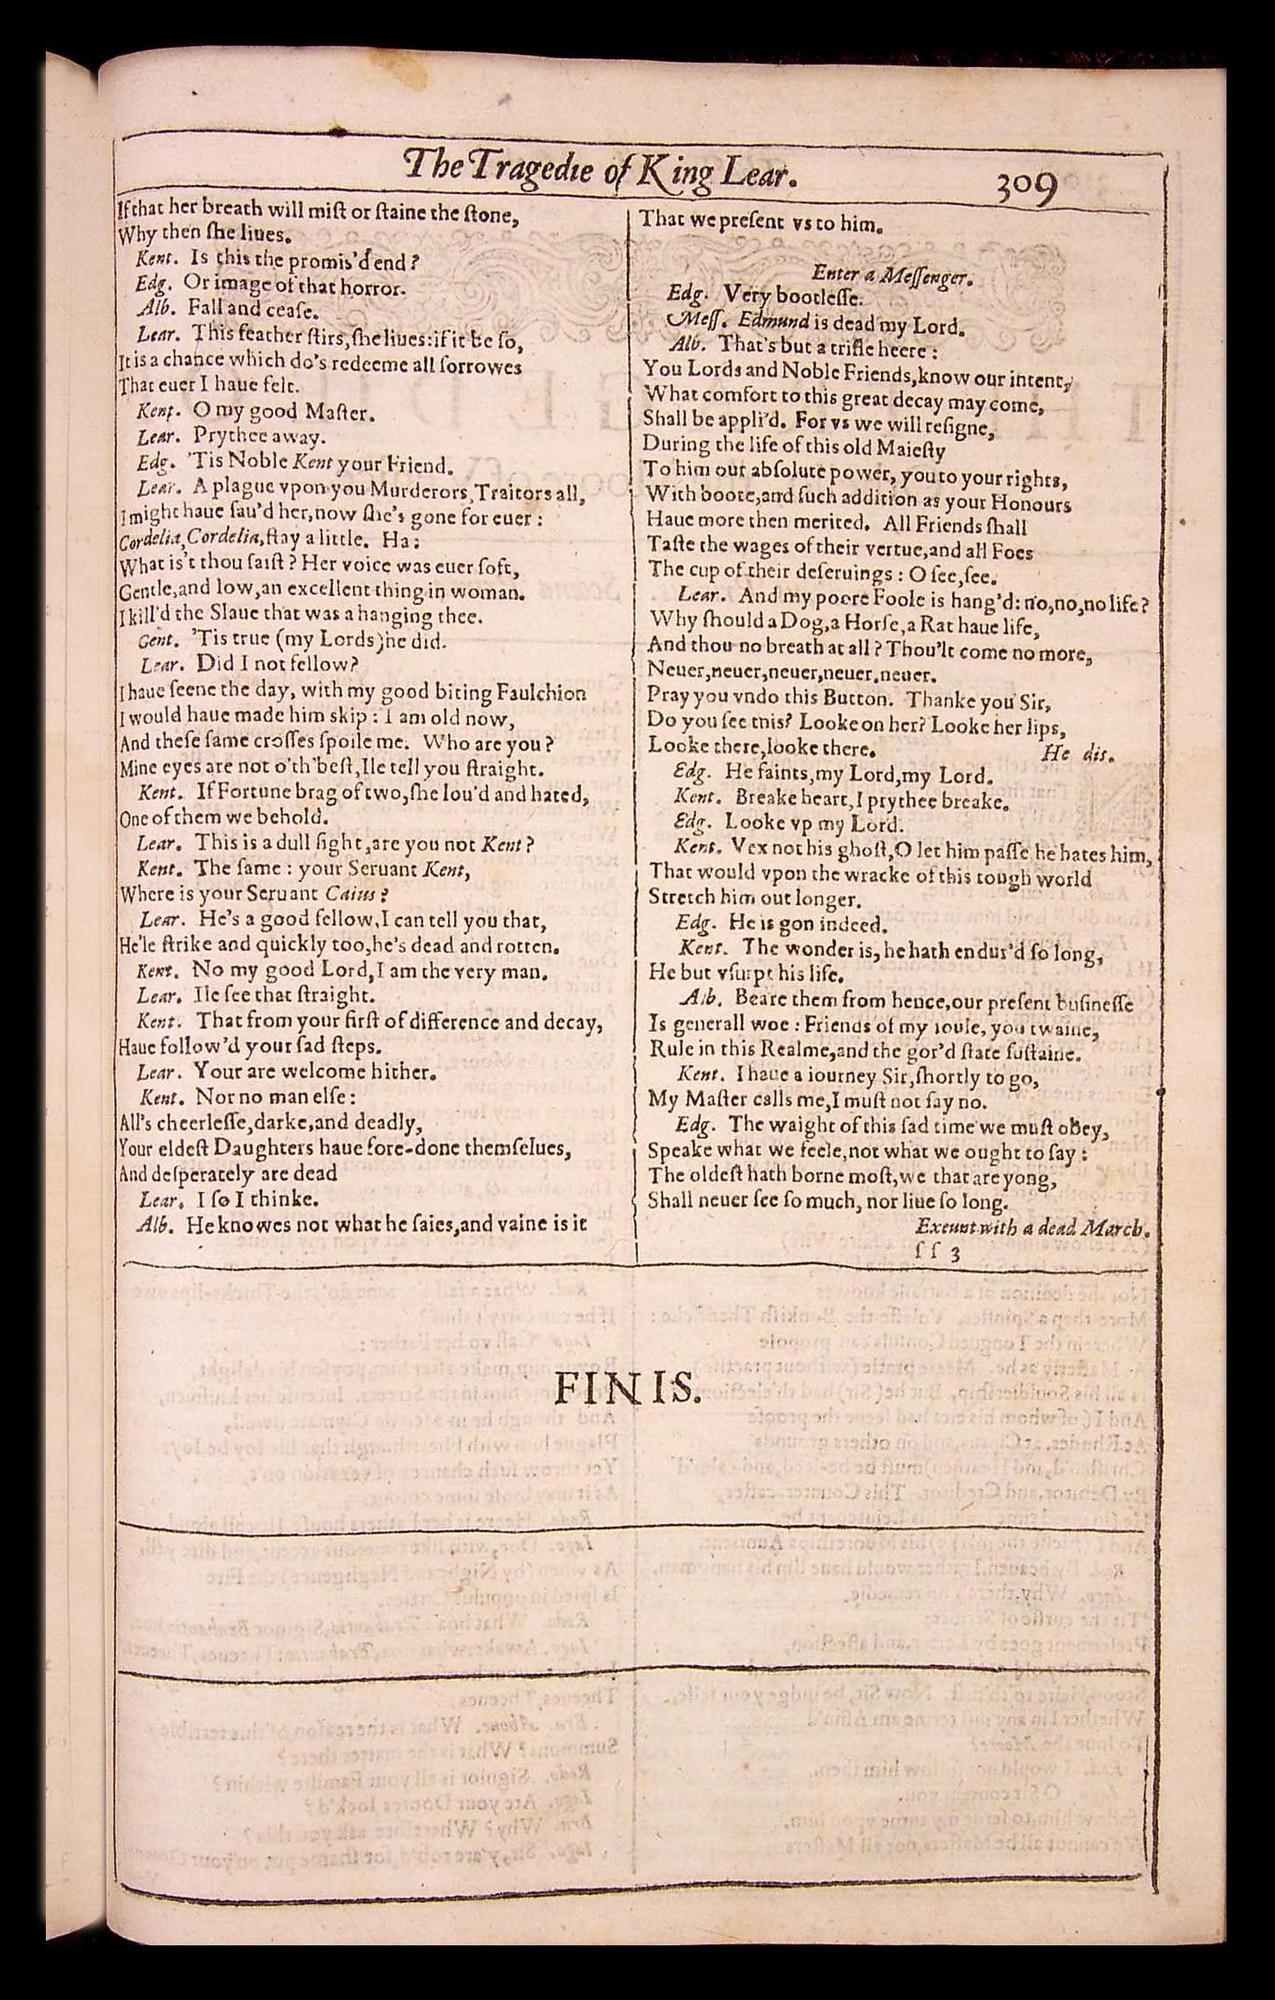 The Tragedie of King Lear.
309
If that her breath will miſt or ſtaine the ſtone,
Why then ſhe liues.
Kent. Is this the promis'd end?
Edg. Or image of that horror.
Alb. Fall and ceaſe.
Lear. This feather ſtirs, ſhe liues: if it be ſo,
It is a chance which do's redeeme all ſorrowes
That euer I haue felt.
Kent. O my good Maſter.
Lear. Prythee away.
Edg. 'Tis Noble Kent your Friend.
Lear. A plague vpon you Murderors, Traitors all,
I might haue ſau'd her, now ſhe's gone for euer:
Cordelia, Cordelia, ſtay a little. Ha:
What is't thou ſaiſt? Her voice was euer ſoft,
Gentle, and low, an excellent thing in woman.
I kill'd the Slaue that was a hanging thee.
Gent. 'Tis true (my Lords) he did.
Lear. Did I not fellow?
I haue ſeene the day, with my good biting Faulchion
I would haue made him skip: I am old now,
And theſe ſame croſſes ſpoile me. Who are you?
Mine eyes are not o'th'beſt, Ile tell you ſtraight.
Kent. If Fortune brag of two, ſhe lou'd and hated,
One of them we behold.
Lear. This is a dull ſight, are you not Kent?
Kent. The ſame: your Seruant Kent,
Where is your Seruant Caius?
Lear. He's a good fellow, I can tell you that,
He'le ſtrike and quickly too, he's dead and rotten.
Kent. No my good Lord, I am the very man.
Lear. Ile ſee that ſtraight.
Kent. That from your firſt of difference and decay,
Haue follow'd your ſad ſteps.
Lear. Your are welcome hither.
Kent. Nor no man elſe:
All's cheerleſſe, darke, and deadly,
Your eldeſt Daughters haue fore-done themſelues,
And deſperately are dead
Lear. I ſo I thinke.
Alb. He knowes not what he ſaies, and vaine is it
That we preſent vs to him.
Enter a Meſſenger.
Edg. Very bootleſſe.
Meſſ. Edmund is dead my Lord.
Alb. That's but a trifle heere:
You Lords and Noble Friends, know our intent,
What comfort to this great decay may come,
Shall be appli'd. For vs we will reſigne,
During the life of this old Maieſty
To him our abſolute power, you to your rights,
With boote, and ſuch addition as your Honours
Haue more then merited. All Friends ſhall
Taſte the wages of their vertue, and all Foes
The cup of their deſeruings: O ſee, ſee.
Lear. And my poore Foole is hang'd: no, no, no life?
Why ſhould a Dog, a Horſe, a Rat haue life,
And thou no breath at all? Thou'lt come no more,
Neuer, neuer, neuer, neuer, neuer.
Pray you vndo this Button. Thanke you Sir,
Do you ſee this? Looke on her? Looke her lips,
Looke there, looke there. He dis.
Edg. He faints, my Lord, my Lord.
Kent. Breake heart, I prythee breake.
Edg. Looke vp my Lord.
Kent. Vex not his ghoſt, O let him paſſe, he hates him,
That would vpon the wracke of this tough world
Stretch him out longer.
Edg. He is gon indeed.
Kent. The wonder is, he hath endur'd ſo long,
He but vſurpt his life.
Alb. Beare them from hence, our preſent buſineſſe
Is generall woe: Friends of my ſoule, you twaine,
Rule in this Realme, and the gor'd ſtate ſuſtaine.
Kent. I haue a iourney Sir, ſhortly to go,
My Maſter calls me, I muſt not ſay no.
Edg. The waight of this ſad time we muſt obey,
Speake what we feele, not what we ought to ſay:
The oldeſt hath borne moſt, we that are yong,
Shall neuer ſee ſo much, nor liue ſo long.
Exeunt with a dead March.
ſſ 3
FINIS.